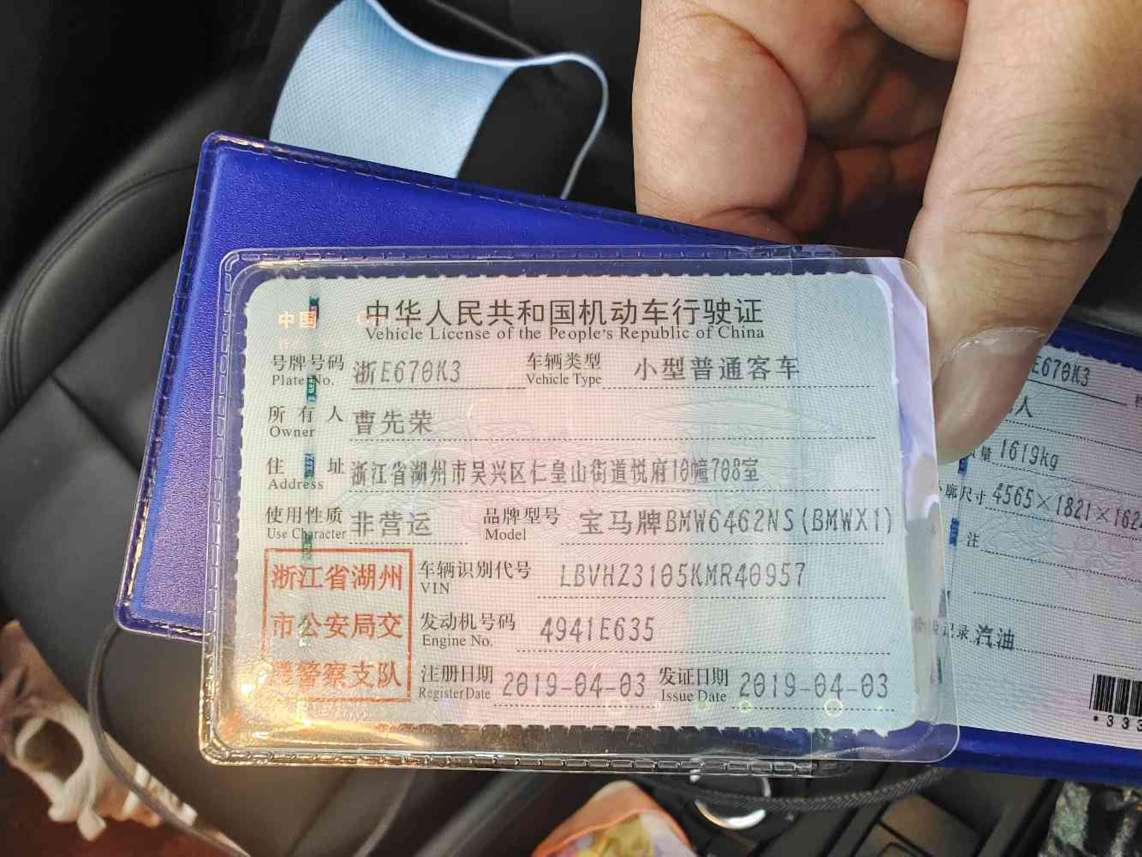 中国
中华人民共和国机动车行驶证
Vehicle License of the People's Republic of China
号牌号码 浙E670K3 车辆类型 小型普通客车
Plate No. Vehicle Type
所有人 曹先荣
Owner
住址 浙江省湖州市吴兴区仁皇山街道悦府10幢708室
Address
使用性质 非营运 品牌型号 宝马牌BMW6462NS(BMWX1)
Use Character Model
浙江省湖州
市公安局交
通警察支队
车辆识别代号 LBVHZ3105KMR40957
VIN
发动机号码 4941E635
Engine No.
注册日期 2019-04-03 发证日期 2019-04-03
Register Date Issue Date
E670K3
人
量 1619kg
廓尺寸 4565×1821×162
注
记录 汽油
*33